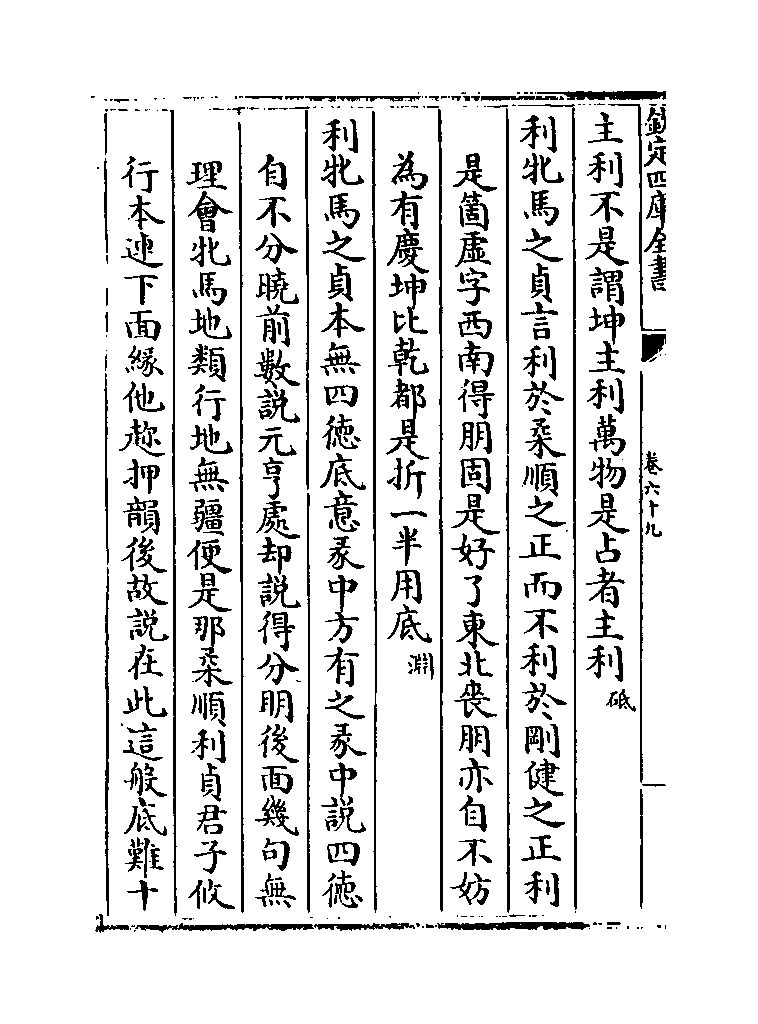 欽定四庫全書
卷六十九
主利不是謂坤主利萬物是占者主利砥
利牝馬之貞言利於柔順之正而不利於剛健之正利
是箇虛字西南得朋固是好了東北喪朋亦自不妨
為有慶坤比乾都是折一半用底淵
利牝馬之貞本無四徳底意彖中方有之彖中説四徳
自不分曉前數説元亨處却説得分明後面幾句無
理會牝馬地類行地無疆便是那柔順利貞君子攸
行本連下面緣他趂押韻後故説在此這般底難十